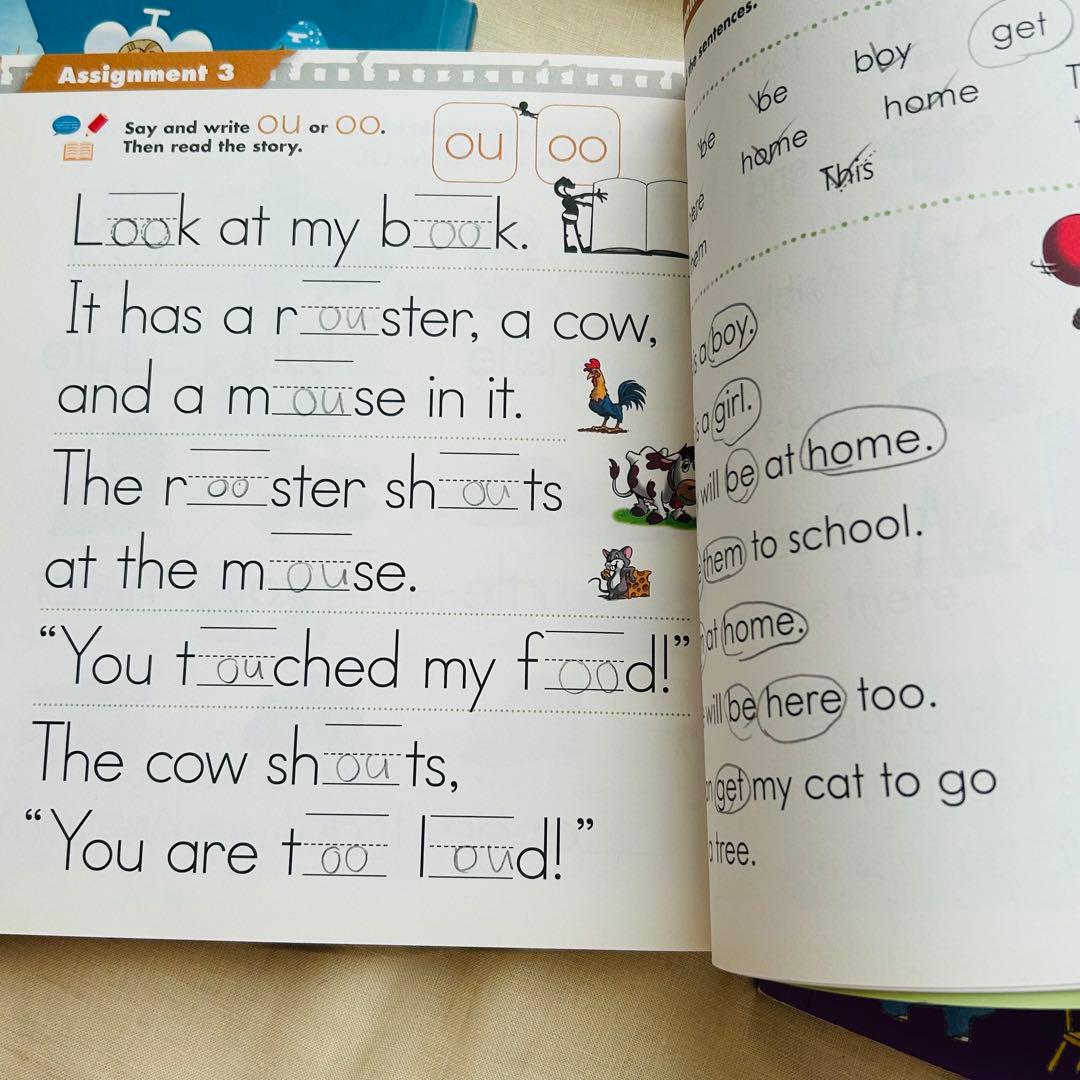 Assignment 3
Say and write ou or oo.
Then read the story.
ou oo
Look at my book.
It has a rouster, a cow,
and a mouse in it.
The rooster shouts
at the mouse.
“You touched my food!”
The cow shouts,
“You are too loud!”
the sentences.
boy get
be home
be home This
a boy.
a girl.
will be at home.
them to school.
at home.
will be here too.
get my cat to go
tree.